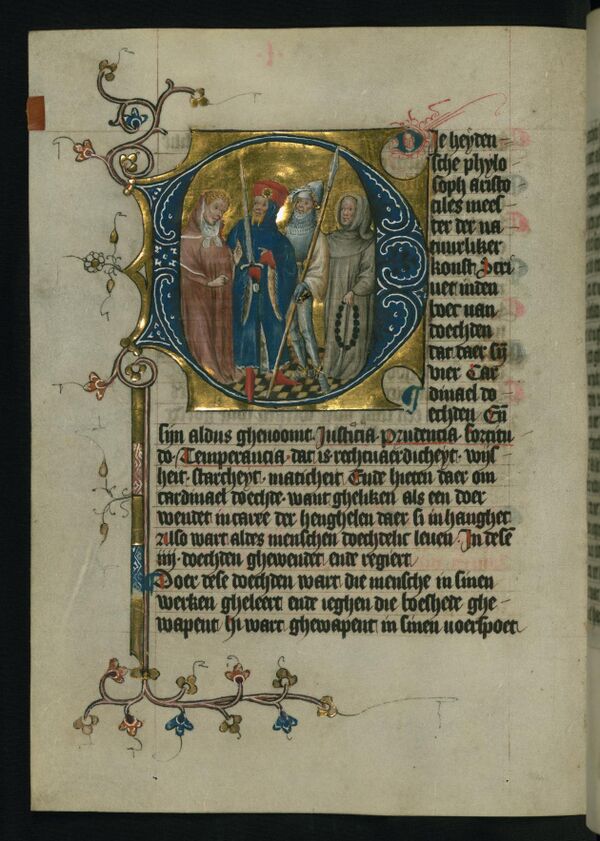 Die heyden
sche phylo
soph aristo
tiles mees
ter der na
tuurliker
konst Scri
uet inden
boec uan
doechden
dat daer sijn
vier Car
dinael do
echden En
sijn aldus ghenoomt Justicia Prudencia fortitu
do Temperancia dat is rechtuaerdicheyt wijs
heit starcheyt maticheit Ende hieten daer om
cardinael doechde want gheliken als een doer
wendet in carre der henghelen daer si in hanghet
Also wart aldes menschen doechdelic leuen In dese
iiij doechden ghewendet ende regiert
Doer dese doechden wart die mensche in sinen
werken gheleert ende ieghen die boesheit ghe
wapent hi wart ghewapent in sinen uoerspoet